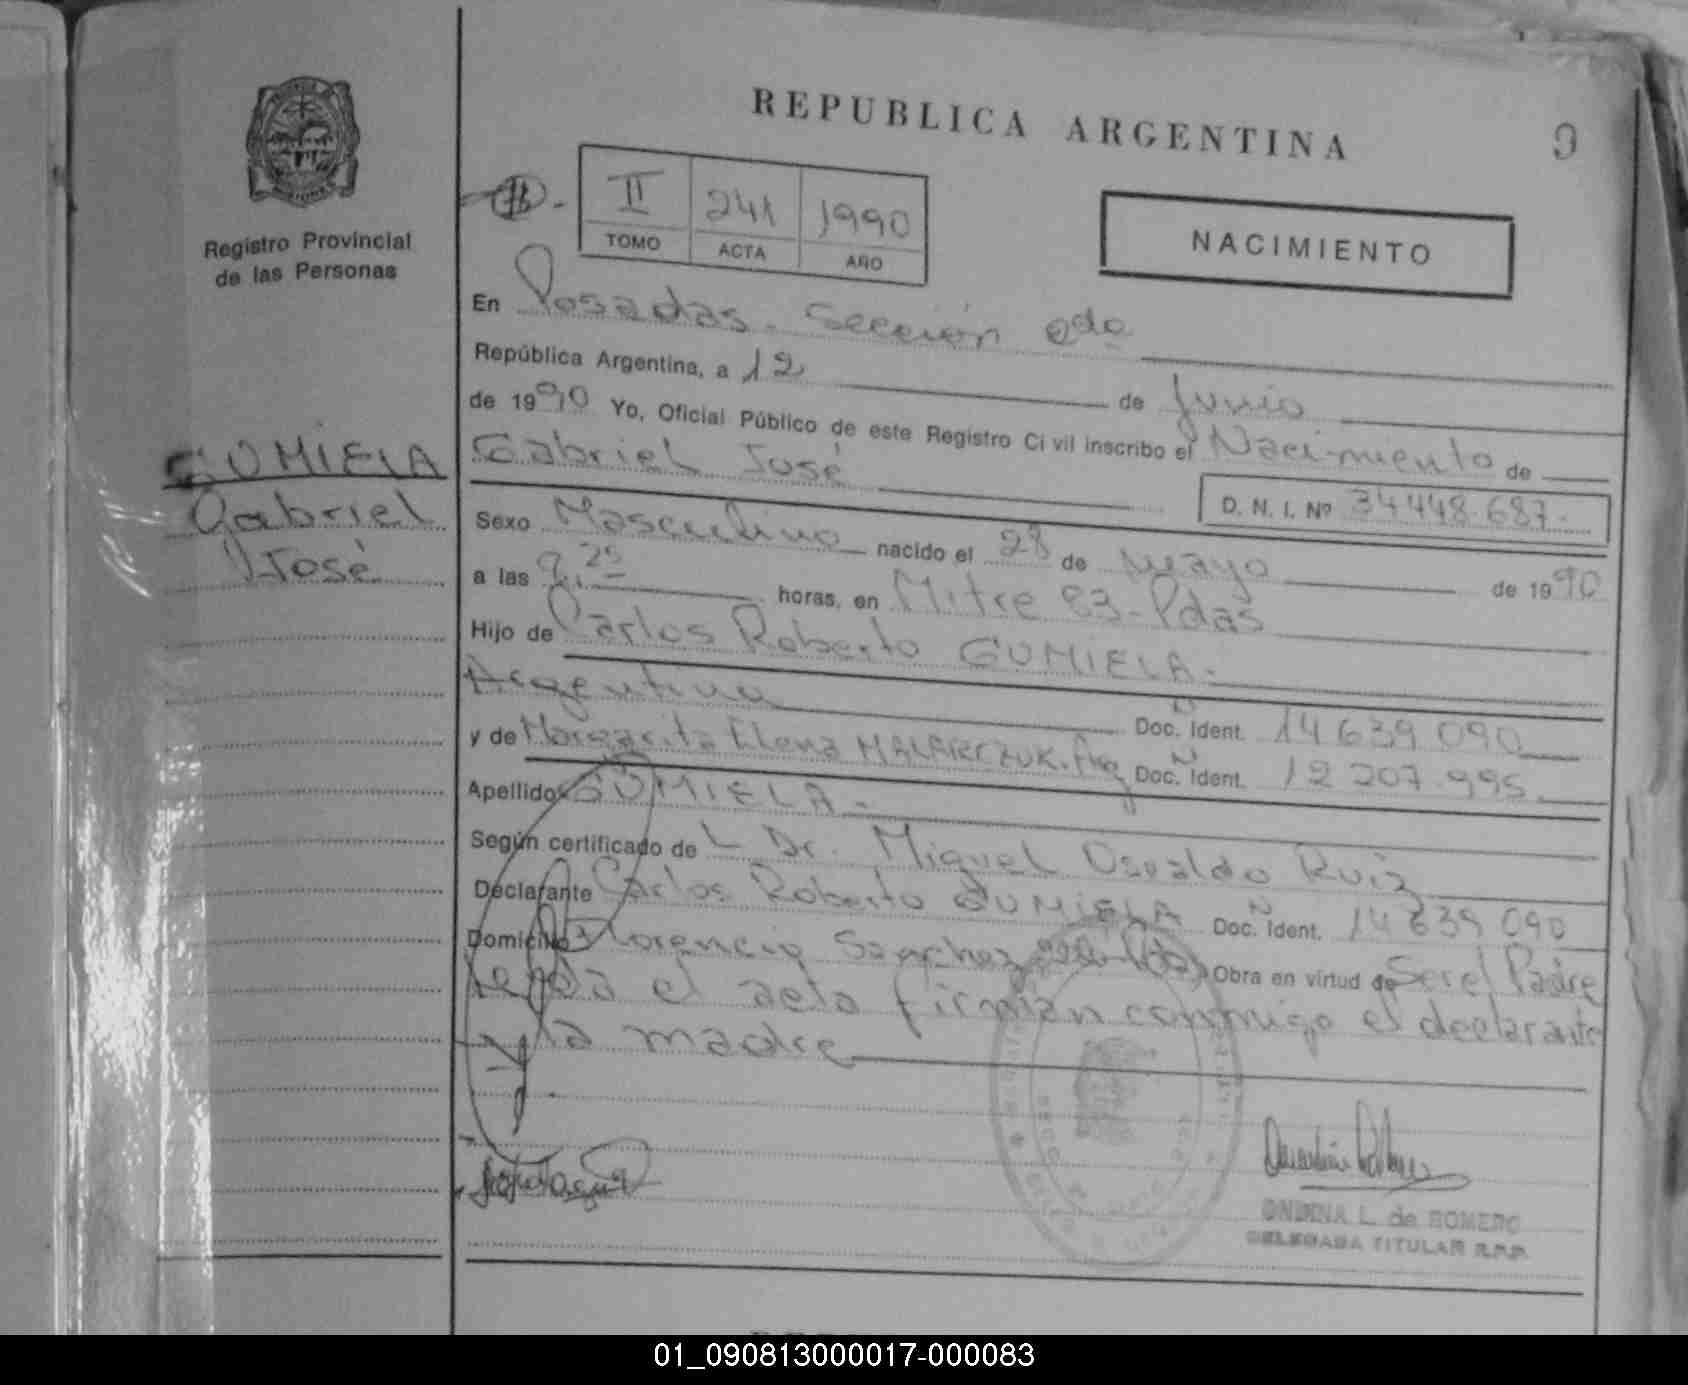 REPUBLICA ARGENTINA
9
Registro Provincial
de las Personas
II 241 1990
TOMO ACTA AÑO
NACIMIENTO
En Posadas. Sección 2da
República Argentina, a 12 de Junio
de 1990 Yo, Oficial Público de este Registro Civil inscribo el Nacimiento de
GUMIELA
Gabriel
José
Gabriel José
D. N. I. Nº 34448.687.
Sexo Masculino nacido el 28 de Mayo de 1990
a las 9,25 horas, en Mitre 83-Pdas
Hijo de Carlos Roberto GUMIELA.
Argentino Doc. N Ident. 14639090
y de Margarita Elena MALARCZUK. Arg Doc. N Ident. 12207.995
Apellido GUMIELA.
Según certificado de L Dr. Miguel Osvaldo Ruiz
Declarante Carlos Roberto GUMIELA Doc. N Ident. 14639090
Domicilio Florencio Sanchez Obra en virtud de Ser el Padre
Leida el acta firman conmigo el declarante
y la madre
ONDINA L. de ROMERO
DELEGADA TITULAR R.P.P.
01_090813000017-000083